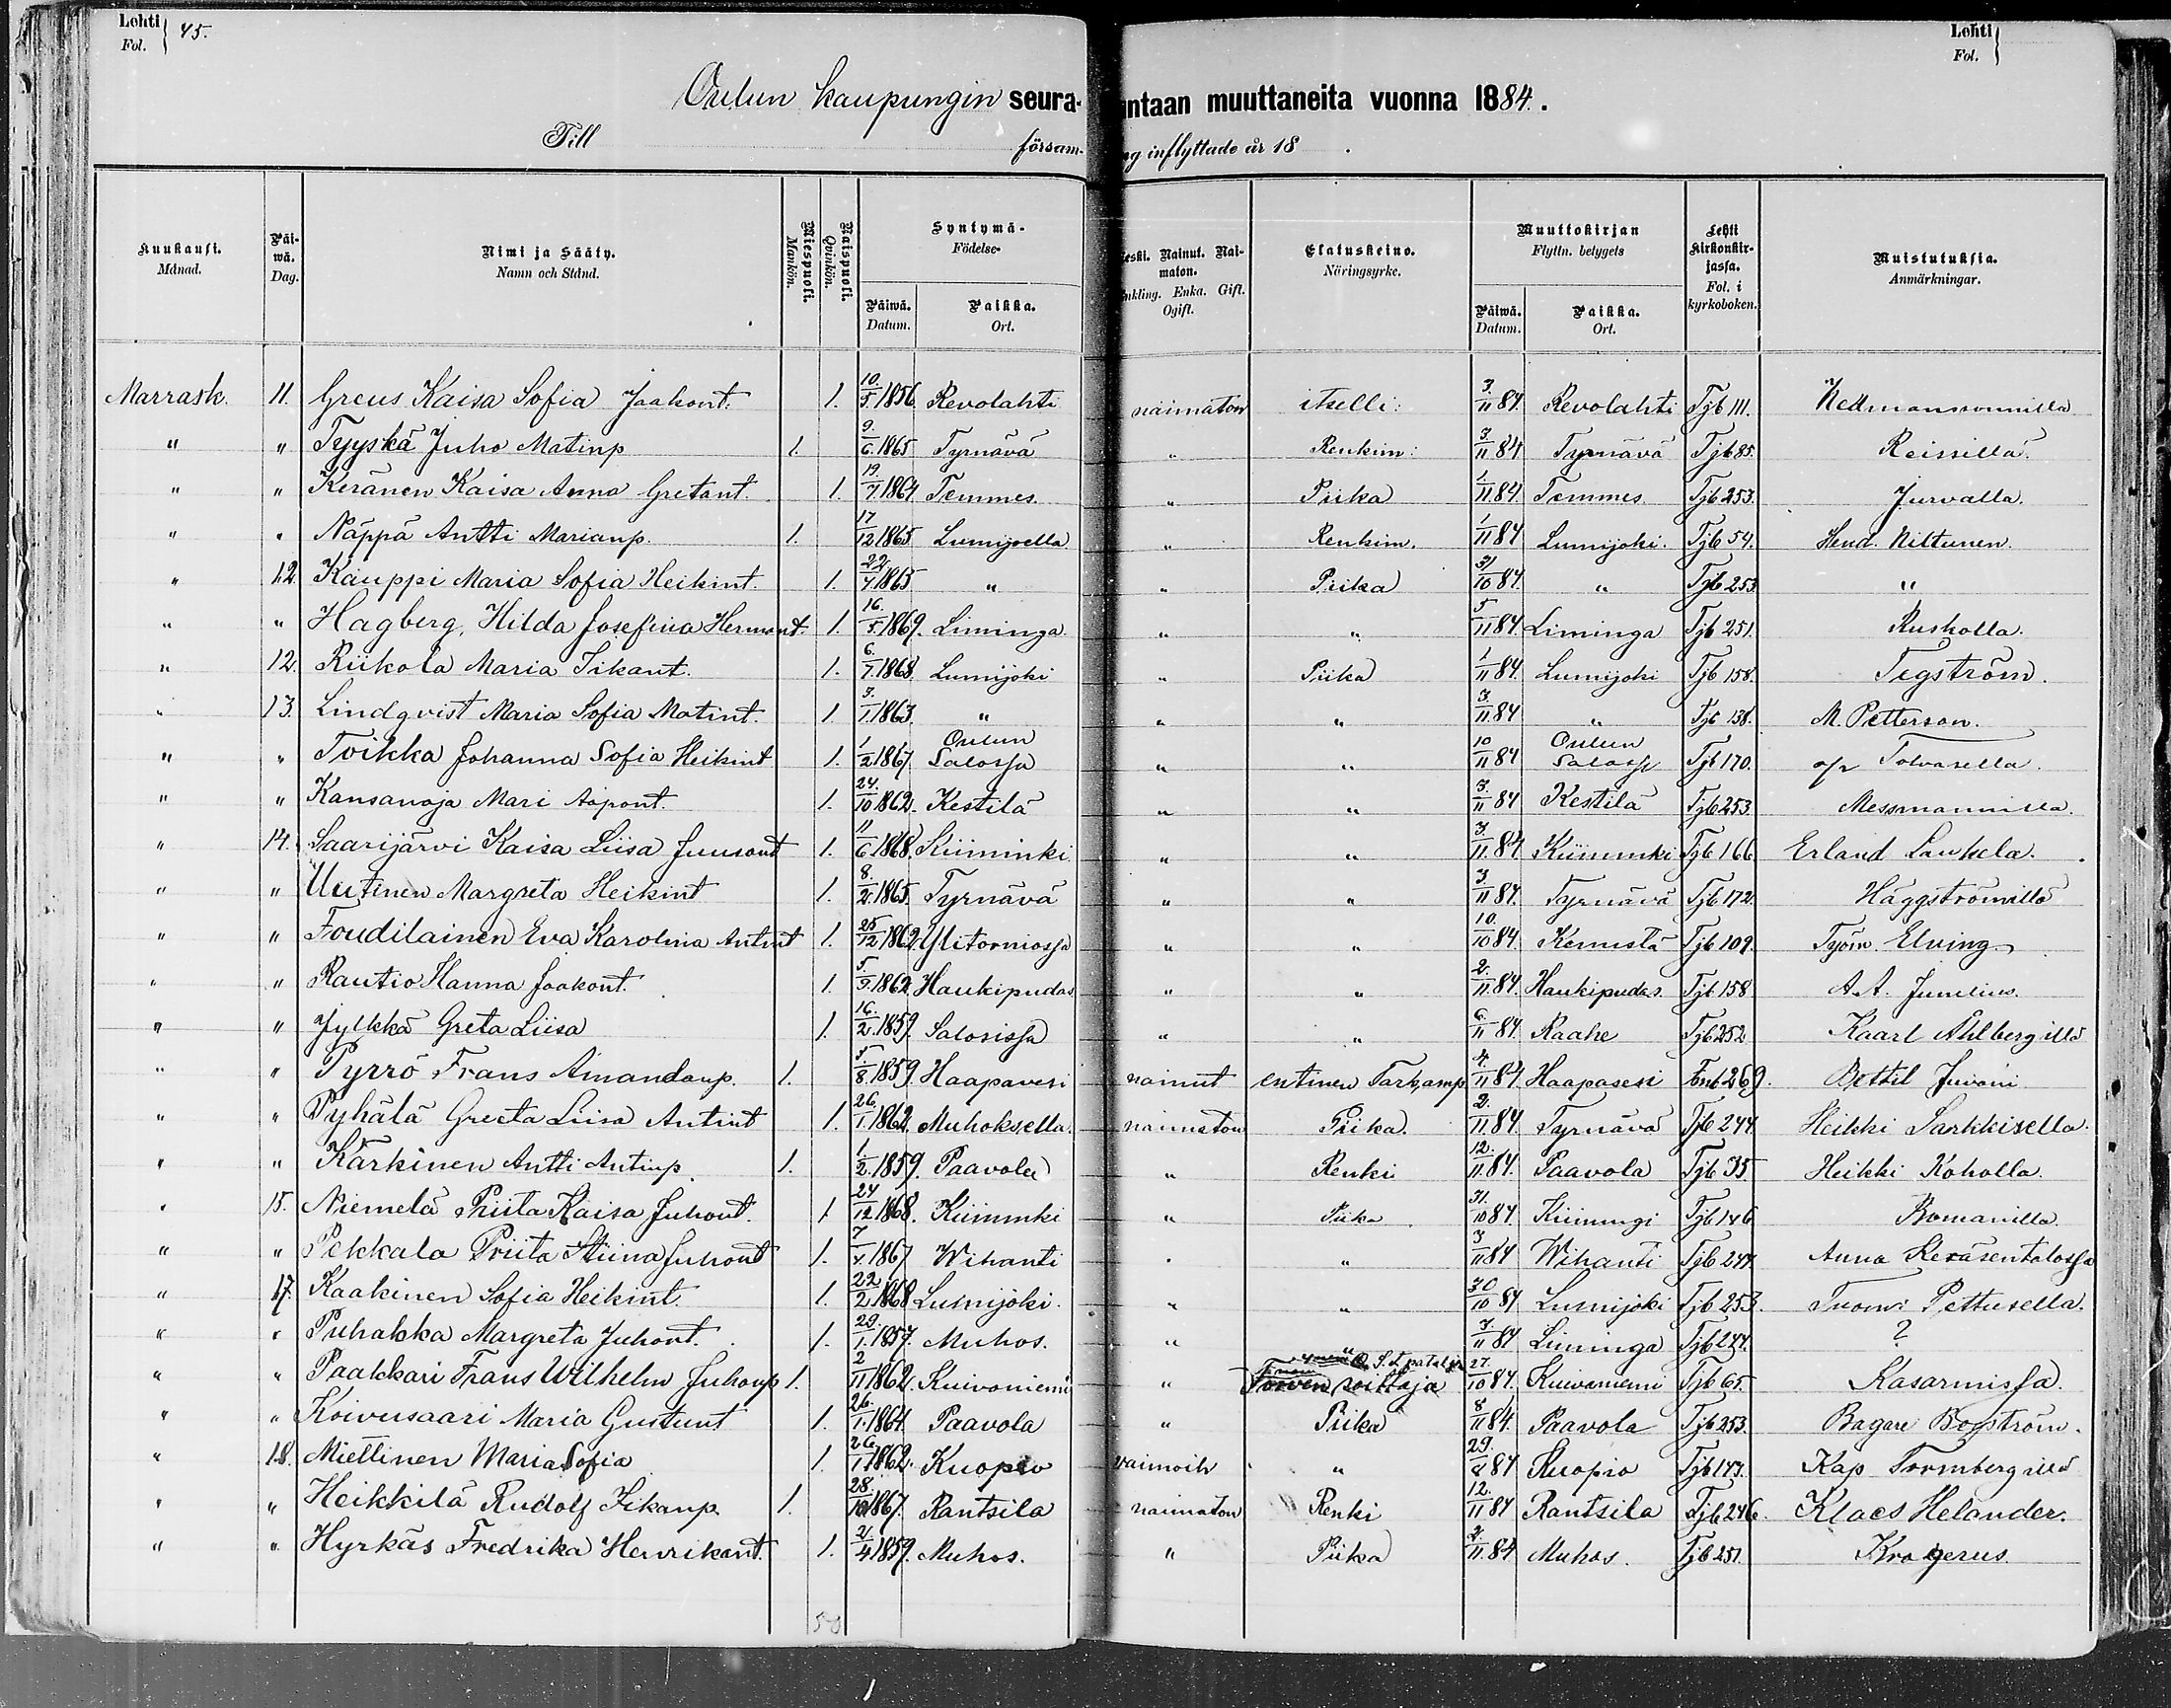 Lehti Fol. 45.
Lehti Fol.
Oulun kaupungin seura- intaan muuttaneita vuonna 1884.
Till försam- ng inflyttade år 18 .
Kuukausi. Månad. Päiwä. Dag. Nimi ja Sääty. Namn och Stånd. Miespuoli. Mankön. Naispuoli. Qvinkön. Syntymä- Födelse- Päiwä. Datum. Paikka. Ort. Leski. Nainut. Naimaton. Enkling. Enka. Gift. Ogift. Elatuskeino. Näringsyrke. Muuttokirjan Flyttn. betygets Päiwä. Datum. Paikka. Ort. Lehti kirkonkirjassa. Fol. i kyrkoboken. Muistutuksia. Anmärkningar.
Marrask. 11. Greus Kaisa Sofia Jaakont. 1. 10/5 1856 Revolahti naimaton itselli: 3/11 84. Revolahti Tjb 111. Nedmansonnilla
" " Tyyskä Juho Matinp 1. 9/6 1865 Tyrnävä " Renkim: 3/11 84 Tyrnävä Tjb 85. Reissillä.
" " Keränen Kaisa Anna Gretant. 1. 19/7 1864 Temmes. " Piika 1/11 84. Temmes. Tjb 253. Jurvalla.
" " Näppä Antti Marianp. 1. 17/12 1865 Lumijoella " Renkim. 1/11 84 Lumijoki. Tjb 54. Hend. Niltunen.
" 12. Kauppi Maria Sofia Heikint. 1. 22/7 1865 " " Piika 31/10 84. " Tjb 253 "
" " Hagberg, Hilda Josefina Hermant. 1. 16./5 1869. Liminga. " " 5/11 84. Liminga Tjb 251. Ruskolla.
" 12. Riikola Maria Iikant. 1. 6./7 1868. Lumijoki " Piika 1/11 84. Lumijoki Tjb 158. Tegström.
" 13. Lindqvist Maria Sofia Matint. 1 3./1 1863. " " " 3/11 84 " Tjb 138. M. Petterson.
" " Toikka Johanna Sofia Heikint 1. 1/2 1867. Oulun Salossa " " 10/11 84 Oulun Salossa Tjb 170. Tolvasella.
" " Kansanoja Mari Aapont. 1. 24./10 1862. Kestilä " " 3./11 84 Kestilä Tjb 253 Messmannilla.
" 14. Saarijärvi Kaisa Liisa Juusont 1. 11/6 1868. Kiiminki " " 3./11. 84. Kiiminki Tjb 166 Erland Laukela.
" " Uutinen Margreta Heikint 1. 8./2. 1865. Tyrnävä " " 3/11 84. Tyrnävä Tjb 172. Häggströmillä
" " Foudilainen Eva Karolina Antint 1. 25/12 1862. Ylitorniossa " " 10./10 84. Kemistä Tjb 109. Työm. Elving.
" " Rautio Hanna Jaakont. 1. 5./9. 1862. Haukipudas " " 2./11. 84. Haukipudas. Tjb 158 A.A. Junelius.
" " Jylkkä Greta Liisa 1. 16./2. 1859. Saloisissa " " 6/11 84. Raahe Tjb 252 Kaarl Ahlbergillä
" " Pyrrö Frans Amandanp. 1. 5./8. 1859. Haapavesi nainut entinen Tark,amp. 4./11 84. Haapavesi 269. Bettil Juvani
" " Pyhälä Greeta Liisa Antint 1. 26./1. 1862. Muhoksella. naimaton Piika. 2./11. 84. Tyrnävä Tjb 244 Heikki Sarkkisella.
" " Kärkinen Antti Antinp. 1. 1./2. 1859. Paavola " Renki 12./11. 84. Paavola Tjb 35 Heikki Koholla.
" 15. Niemelä Priita Kaisa Juhont. 1 24/12 1868. Kiiminki " Piika 31./10 84. Kiimingi Tjb 146 Bomanilla.
" " Pekkala Priita Stiina Juhont 1. 7/4. 1867 Wihanti " " 3/11 84 Wihanti Tjb 244. Anna Keräsentalossa
" 17. Kaakinen Sofia Heikint. 1. 22/2 1868 Lumijoki. " " 30/10 84 Lumijoki Tjb 253. Tuomi Pettusella.
" " Puhakka Margreta Juhont. 1. 29./1. 1857. Muhos. " " 7./11 84 Liminga Tjb 244. ?
" " Paakkari Frans Wilhelm Juhonp 1. 2/11 1862. Kuivaniemi " Torven soittaja 27./10 84. Kuivaniemi Tjb 65. Kasarmissa.
" " Koivusaari Maria Gustunt 1. 26./1. 1864. Paavola " Piika 8/11 84. Paavola Tjb 253. Bagare Bogström.
" 18. Miettinen Maria Sofia 1. 26/1 1862. Kuopio " 29./ 84 Kuopio Tjb 147. Kap Tormbergillä
" " Heikkilä Rudolf Iikanp. 1. 28./10 1867. Rantsila naimaton Renki 12./11 84 Rantsila Tjb 246. Klaes Helander.
" " Hyrkäs Fredrika Henrikant. 1. 21/4 1859. Muhos. " Piika 2./11. 84 Muhos. Tjb 251. Krogerus.